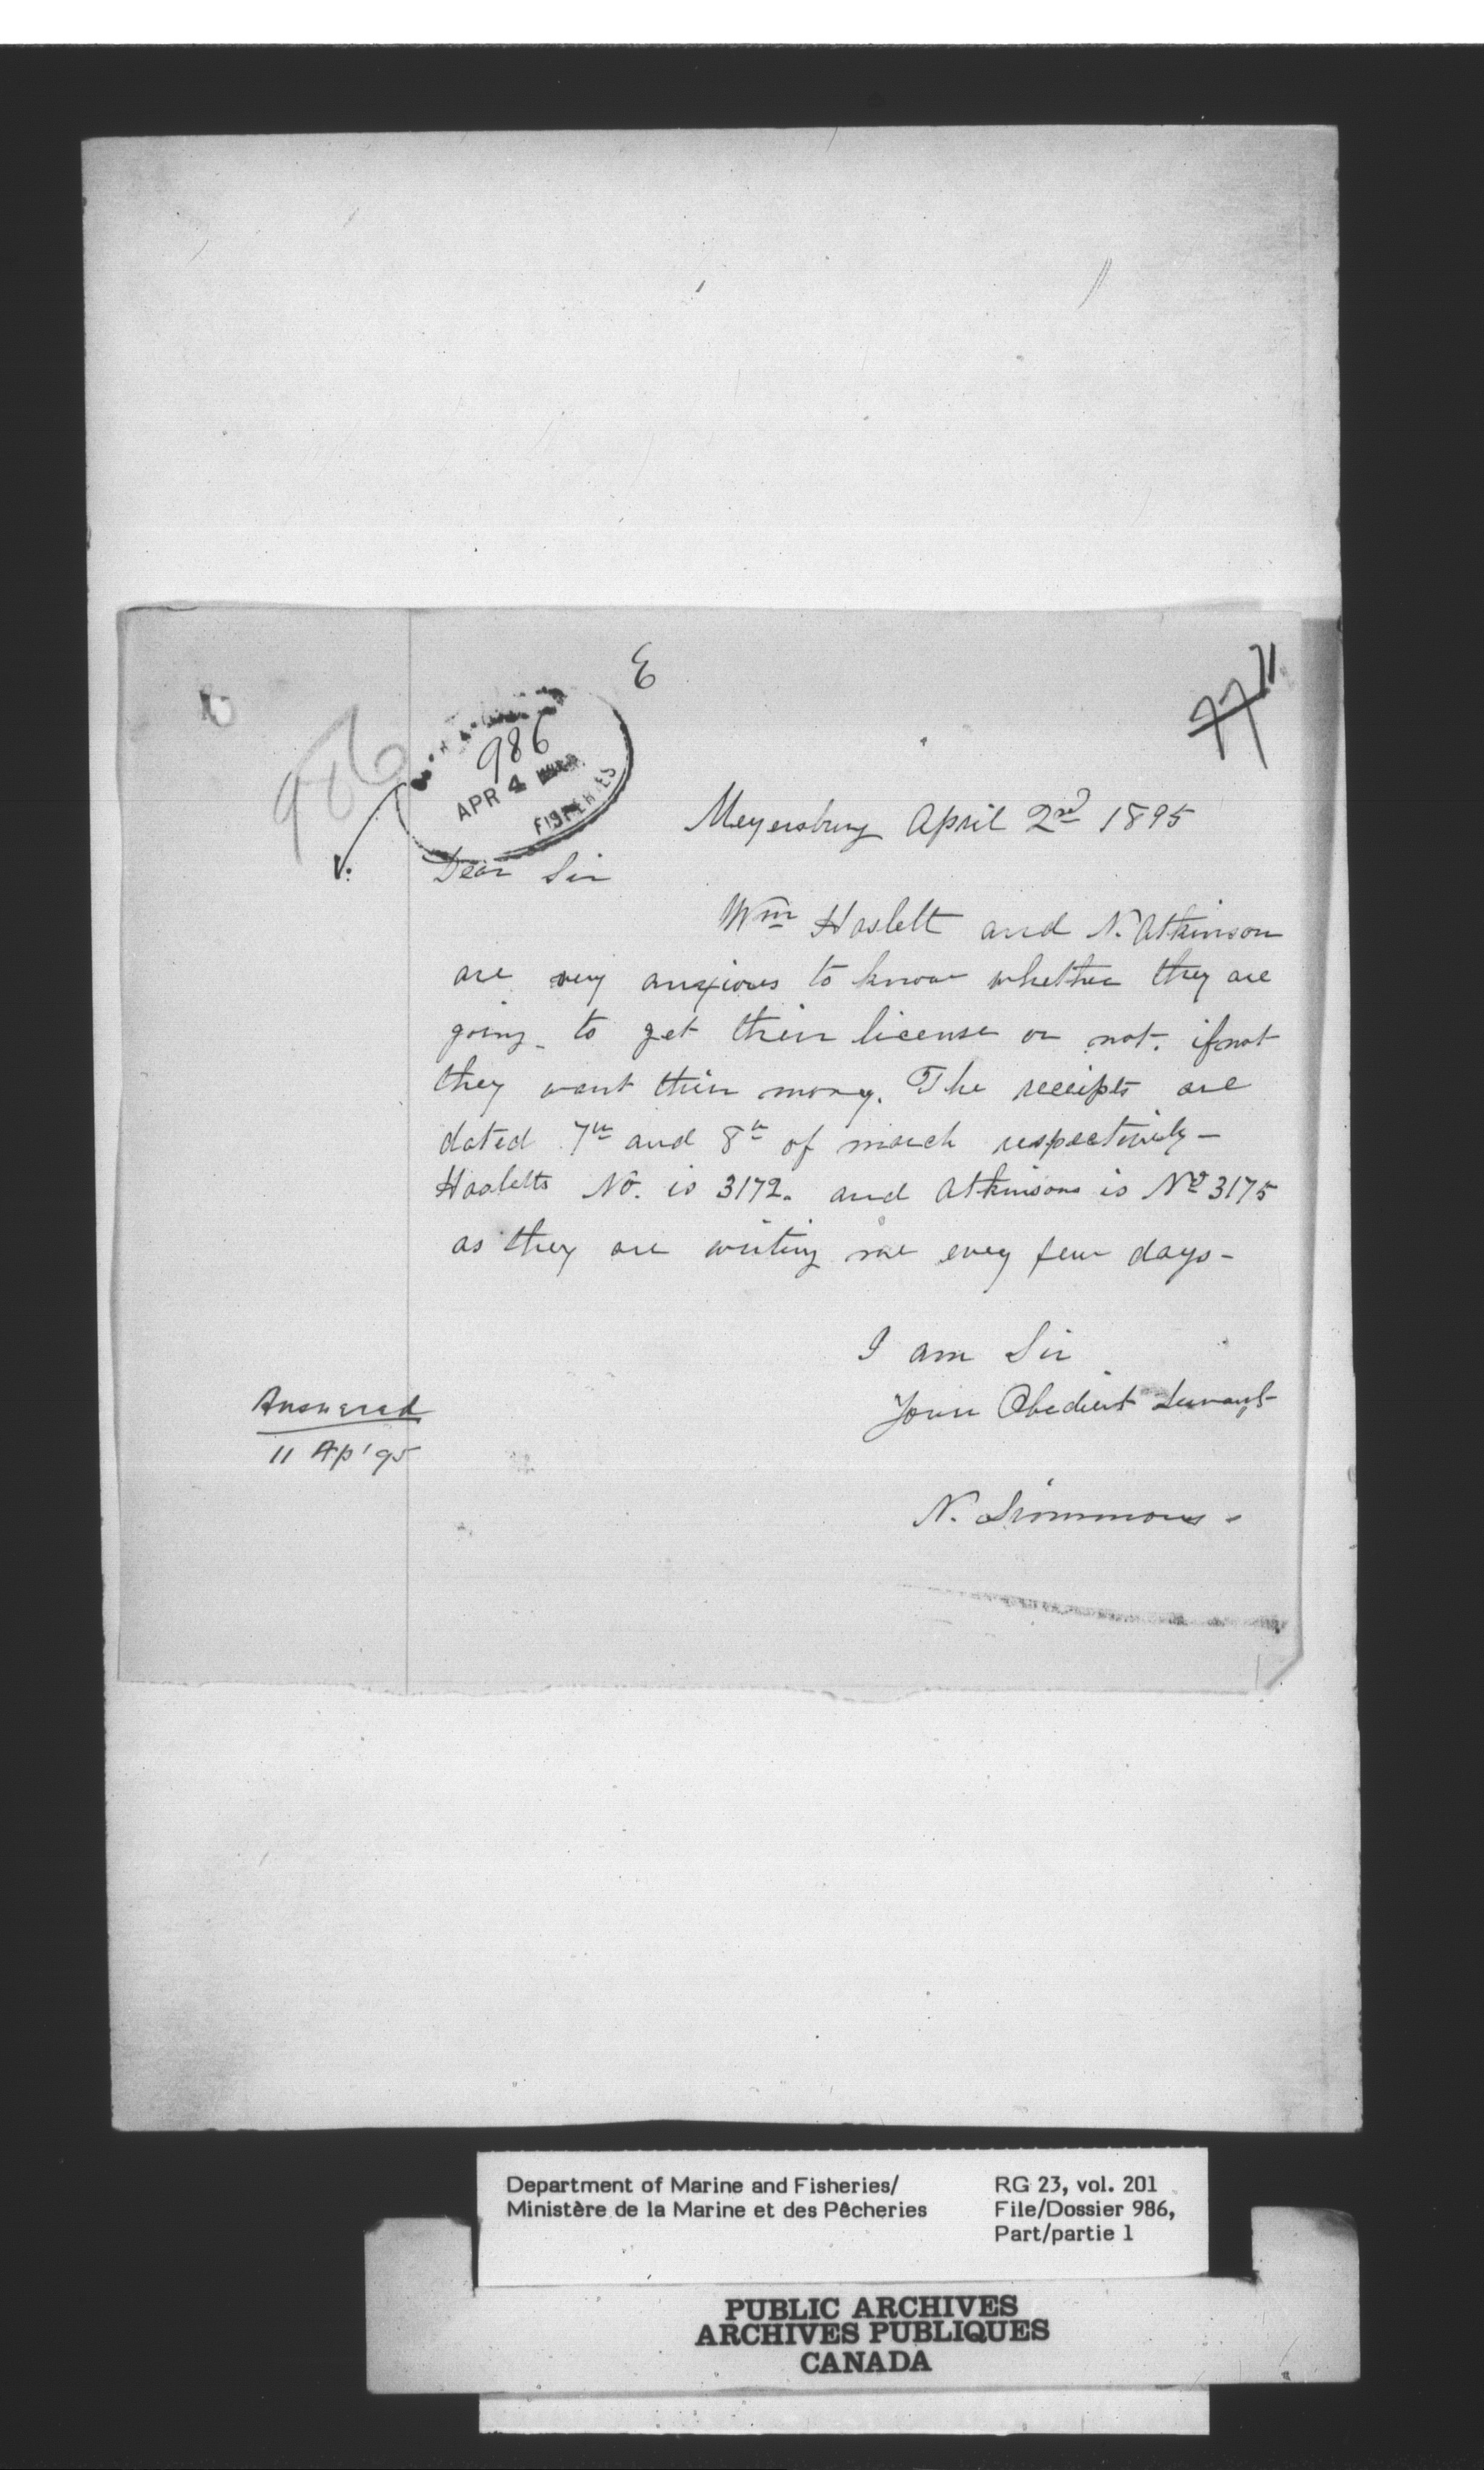 E
71
77
986
986
APR 4 1895
FISHERIES
Meyersburg April 2nd 1895
Dear Sir
Wm Haslett and N. Atkinson
are very anxious to know whether they are
going to get their license or not. if not
they want their money. The receipts are
dated 7th and 8th of march respectively –
Hasletts No. is 3172. and Atkinsons is No 3175
as they are writing me every few days –
I am Sir
Your Obedient Servant
Answered
11 Ap '95
N. Simmons –
Department of Marine and Fisheries/
Ministère de la Marine et des Pêcheries
RG 23, vol. 201
File/Dossier 986,
Part/partie 1
PUBLIC ARCHIVES
ARCHIVES PUBLIQUES
CANADA